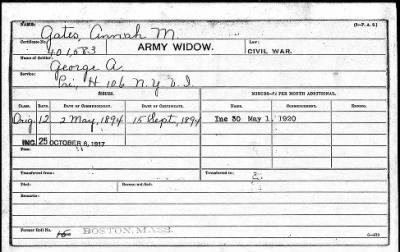 NAME: Gates, Annah M. (3—P. A. G.)
Certificate No. 401,083 ARMY WIDOW. Law: CIVIL WAR.
Name of Soldier: George A.
Service: Pri, H 106 N.Y. V. I.
ISSUES. MINORS—$2 PER MONTH ADDITIONAL.
CLASS. RATE. DATE OF COMMENCEMENT. DATE OF CERTIFICATE. NAME. COMMENCEMENT. ENDING.
Orig. 12 2 May, 1894 15 Sept, 1894 Inc 30 May 1, 1920
INC. 25 OCTOBER 6, 1917
From:
Transferred from: Transferred to:
Died: Reason not filed:
Remarks:
Former Roll No. 15 BOSTON, MASS.